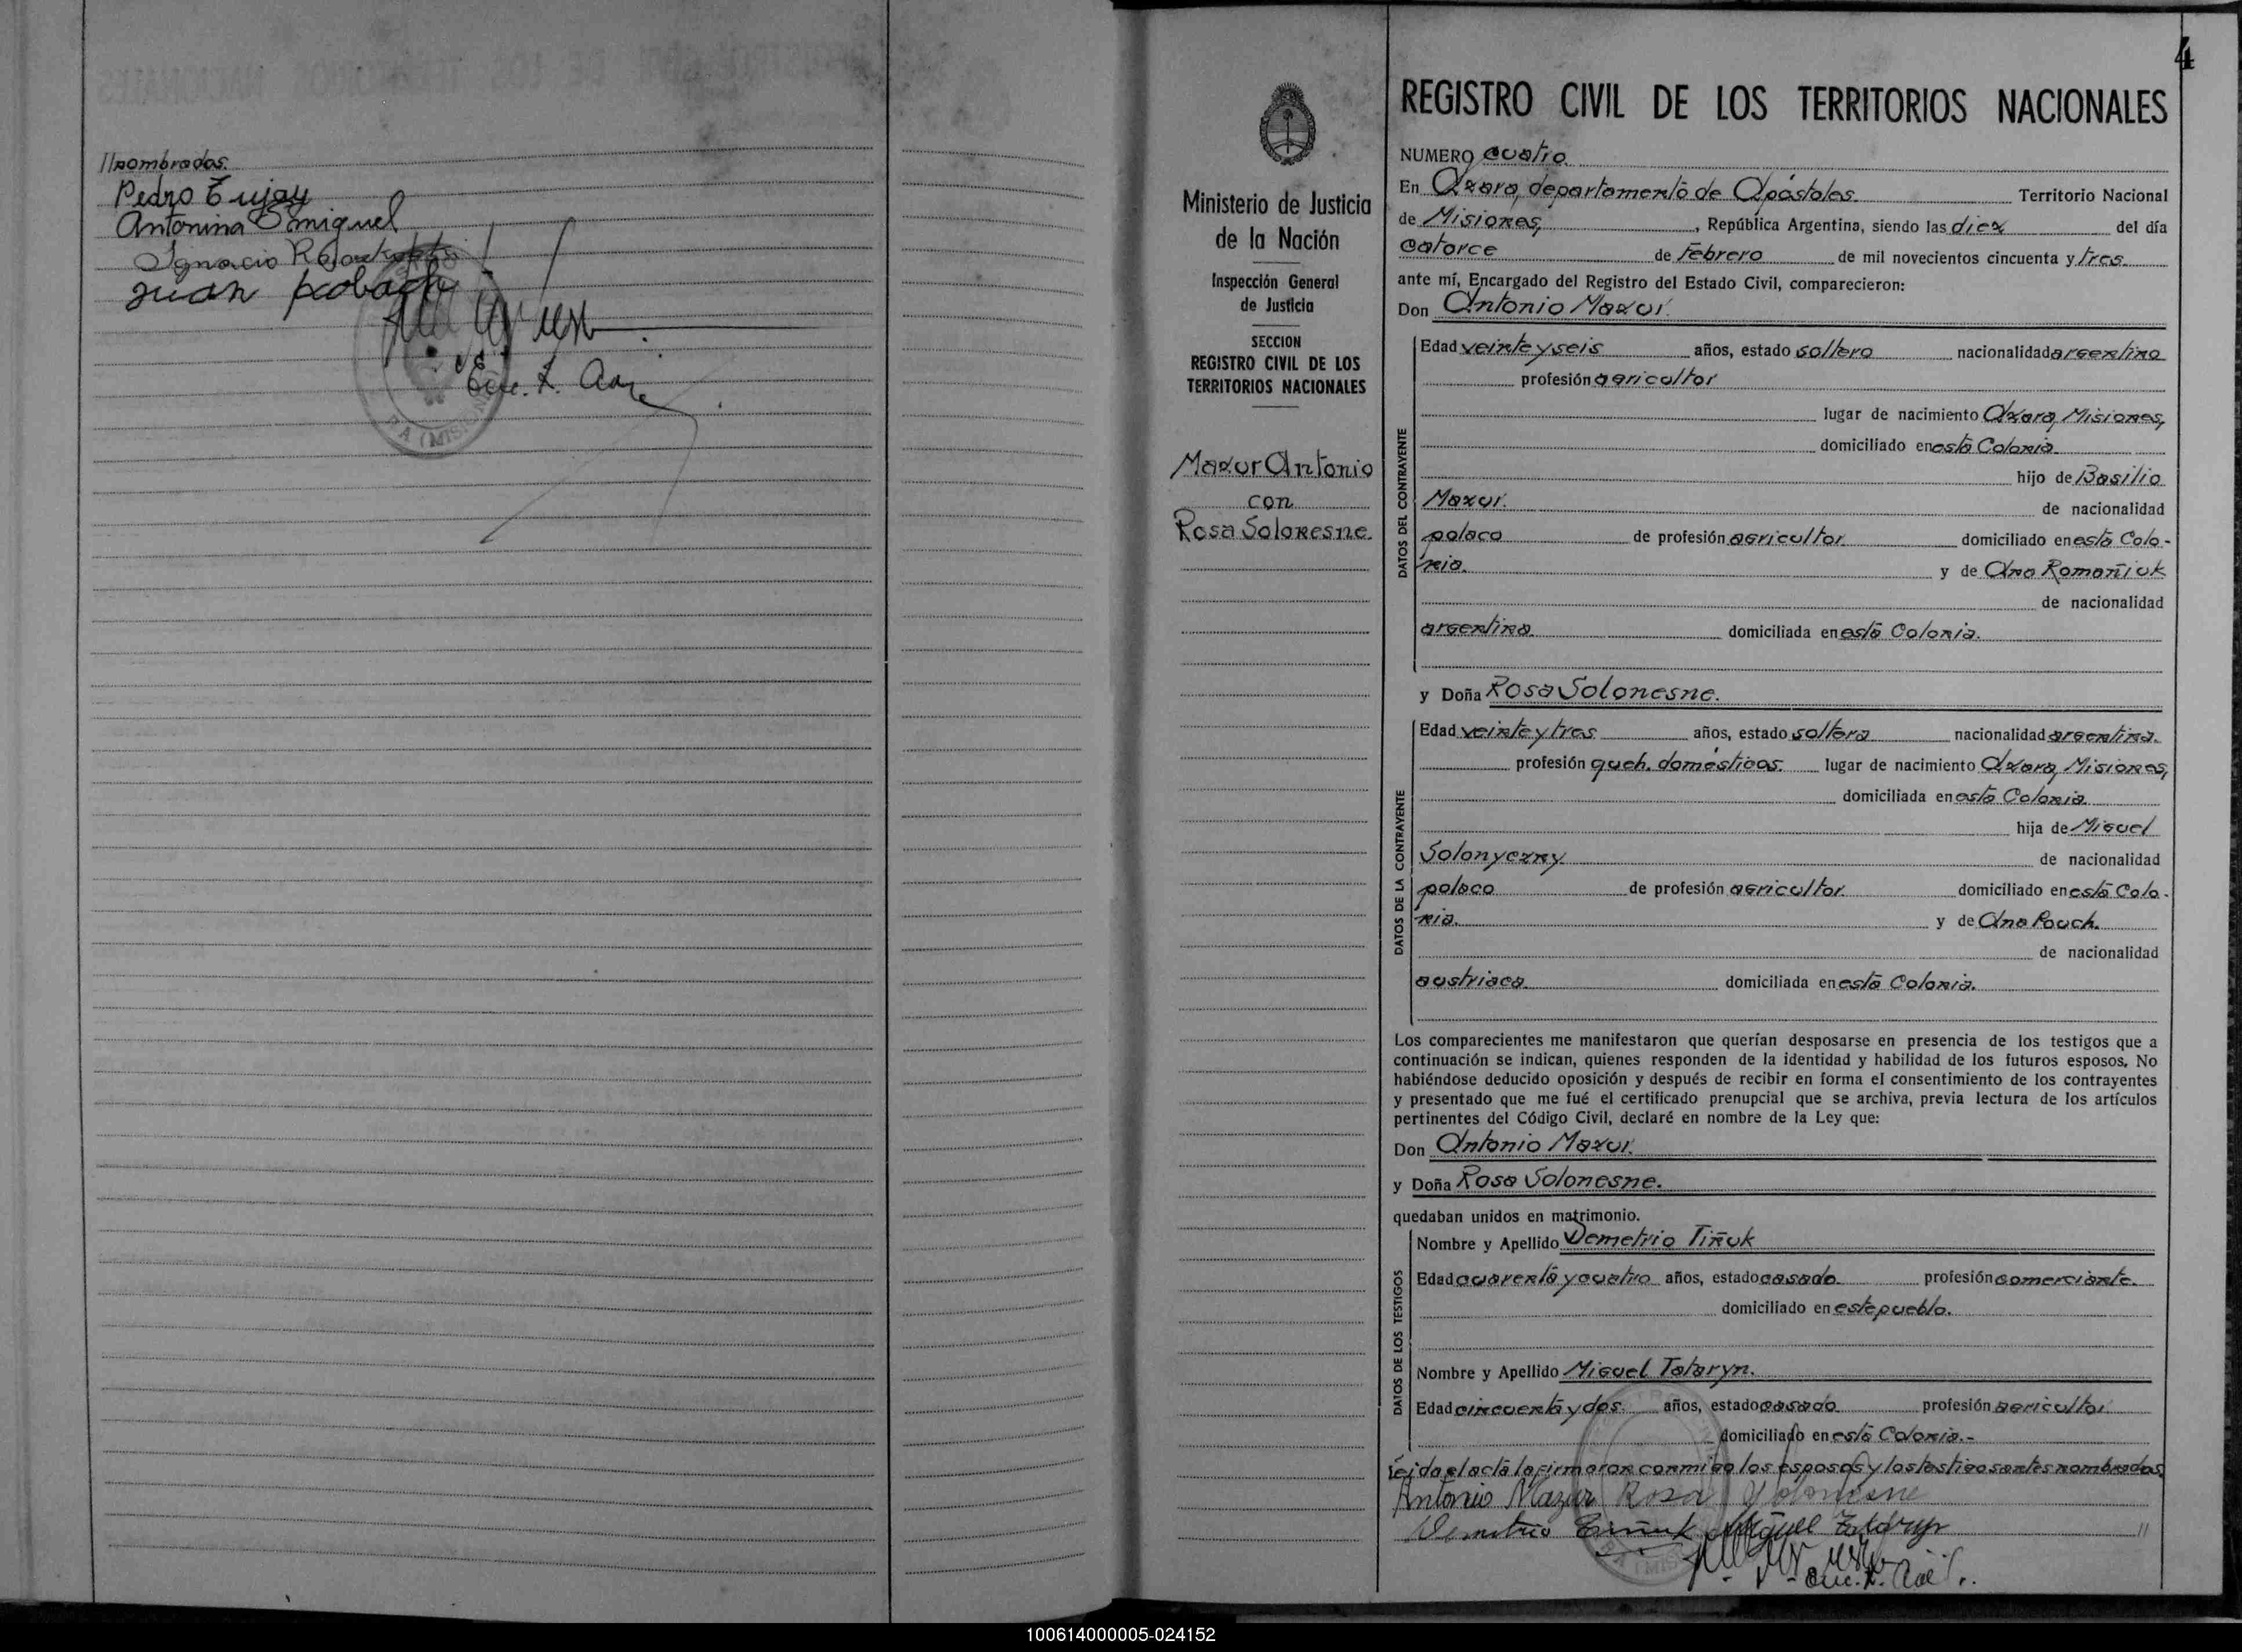 //nombrados.
Pedro Tujay
Antonina Smiguel
Ignacio
Juan
Enc. R. Civil
4
Ministerio de Justicia
de la Nación
Inspección General
de Justicia
SECCION
REGISTRO CIVIL DE LOS
TERRITORIOS NACIONALES
Mazur Antonio
con
Rosa Solonesne.
REGISTRO CIVIL DE LOS TERRITORIOS NACIONALES
NUMERO cuatro.
En Azara, departamento de Apóstoles. Territorio Nacional
de Misiones, , República Argentina, siendo las diez del día
catorce de Febrero de mil novecientos cincuenta y tres.
ante mí, Encargado del Registro del Estado Civil, comparecieron:
Don Antonio Mazur.
DATOS DEL CONTRAYENTE
Edad veinte y seis años, estado soltero nacionalidad argentino
profesión agricultor
lugar de nacimiento Azara, Misiones,
domiciliado en esta Colonia.
hijo de Basilio
Mazur. de nacionalidad
polaco de profesión agricultor. domiciliado en esta Colo-
nia. y de Ana Romañiuk
de nacionalidad
argentina. domiciliada en esta Colonia.
y Doña Rosa Solonesne.
DATOS DE LA CONTRAYENTE
Edad veinte y tres años, estado soltera nacionalidad argentina.
profesión queh. domésticos. lugar de nacimiento Azara, Misiones,
domiciliada en esta Colonia.
hija de Miguel
Solonyczny de nacionalidad
polaco de profesión agricultor. domiciliado en esta Colo-
nia. y de Ana Pouch.
de nacionalidad
austriaca. domiciliada en esta Colonia.
Los comparecientes me manifestaron que querían desposarse en presencia de los testigos que a
continuación se indican, quienes responden de la identidad y habilidad de los futuros esposos. No
habiéndose deducido oposición y después de recibir en forma el consentimiento de los contrayentes
y presentado que me fué el certificado prenupcial que se archiva, previa lectura de los artículos
pertinentes del Código Civil, declaré en nombre de la Ley que:
Don Antonio Mazur.
y Doña Rosa Solonesne.
quedaban unidos en matrimonio.
DATOS DE LOS TESTIGOS
Nombre y Apellido Demetrio Tiñuk
Edad cuarenta y cuatro años, estado casado. profesión comerciante.
domiciliado en este pueblo.
Nombre y Apellido Miguel Tataryn.
Edad cincuenta y dos. años, estado casado profesión agricultor
domiciliado en esta Colonia.-
Leida el acta la firmaron conmigo los esposos y los testigos antes nombrados.
Antonio Mazur Rosa Solonesne
Demetrio Tiñuk Miguel Tataryn //
100614000005-024152